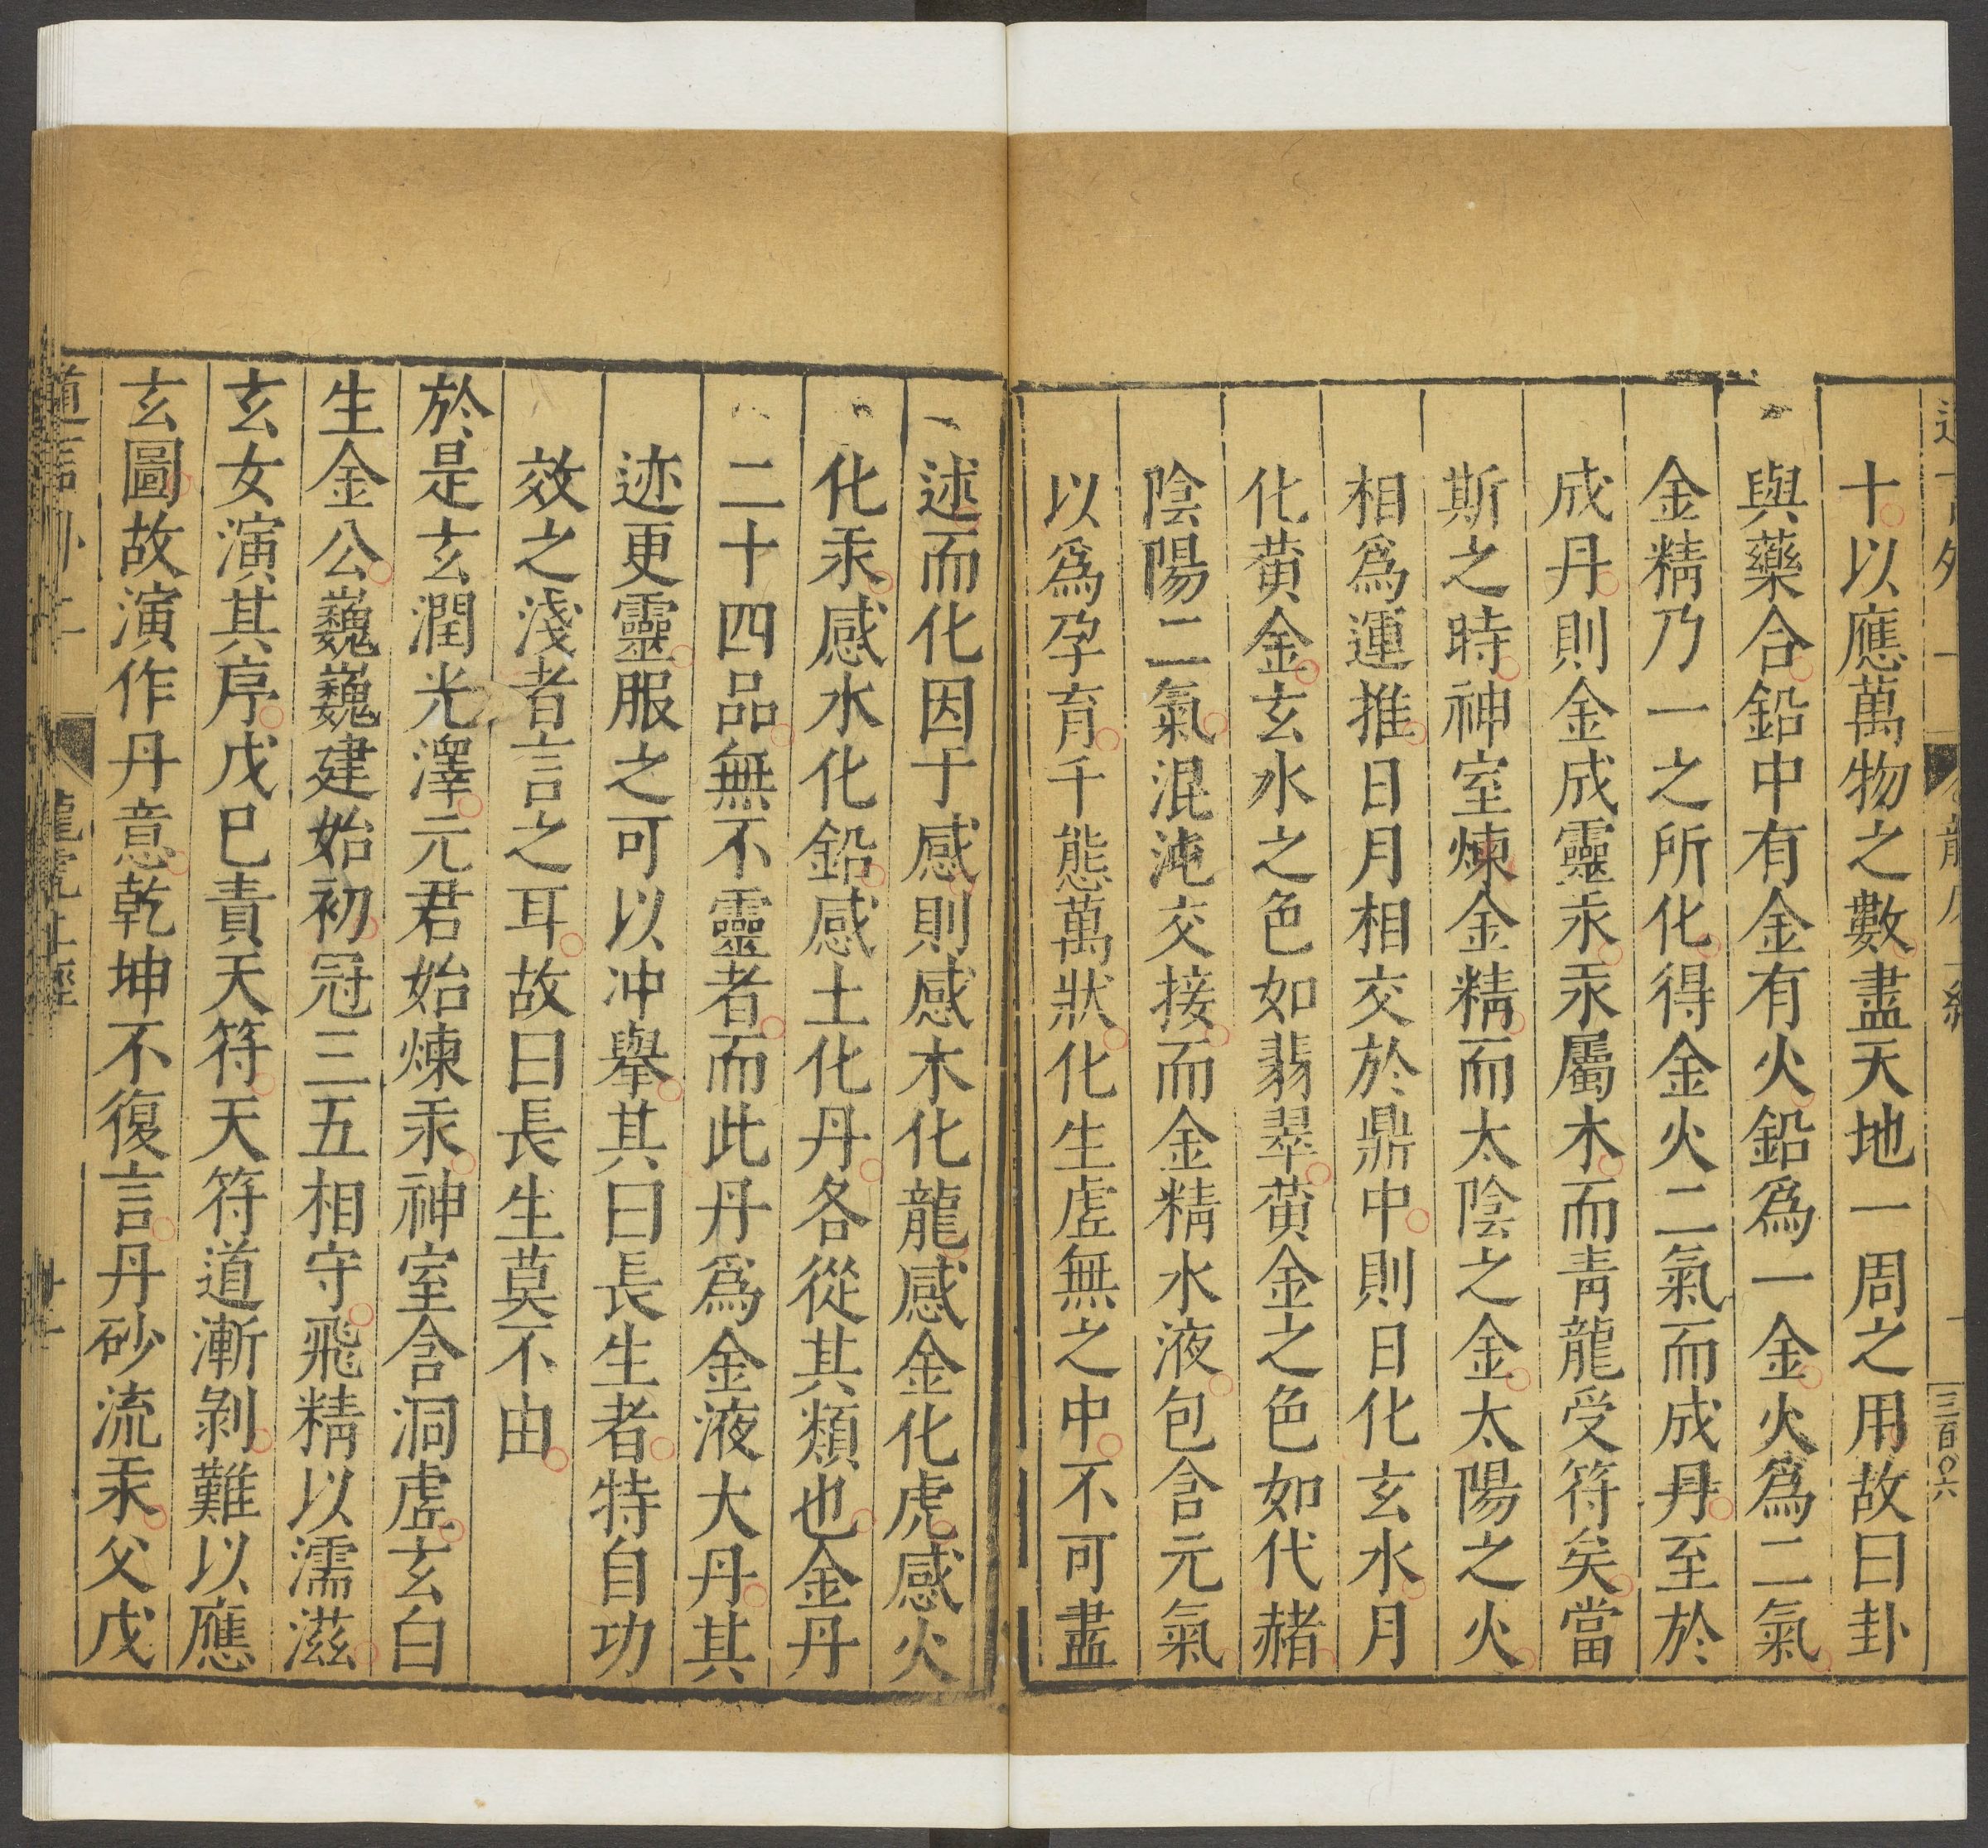 三百○六
十以應萬物之數盡天地一周之用故曰卦
與藥合鉛中有金有火鉛爲一金火爲二氣
金精乃一之所化得金火二氣而成丹至於
成丹則金成靈汞汞屬木而靑龍受符矣當
斯之時神室煉金精而太陰之金太陽之火
相爲運推日月相交於鼎中則日化玄水月
化黃金玄水之色如翡翠黃金之色如代赭
陰陽二氣混沌交接而金精水液包含元氣
以爲孕育千態萬狀化生虛無之中不可盡
述而化因于感則感木化龍感金化虎感火
化汞感水化鉛感土化丹各從其類也金丹
二十四品無不靈者而此丹爲金液大丹其
迹更靈服之可以冲舉其曰長生者特自功
效之淺者言之耳故曰長生莫不由
於是玄潤光澤元君始煉汞神室含洞虛玄白
生金公巍巍建始初冠三五相守飛精以濡滋
玄女演其序戊巳責天符天符道漸剝難以應
玄圖故演作丹意乾坤不復言丹砂流汞父戊
道言外 龍虎上經